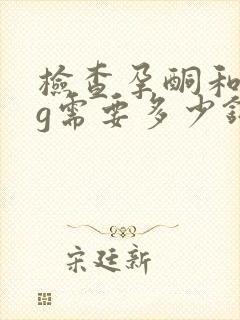 檢查孕酮和
g需要多少錢
宋廷新